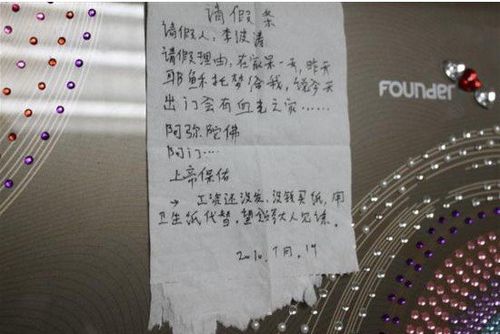 请假条
请假人：李波涛
请假理由，在家呆一天，昨天
耶稣托梦给我，说今天
出门会有血光之灾……
阿弥陀佛
阿门…
上帝保佑
→ 工资还没发，没钱买纸，用
卫生纸代替，望大人见谅。
2010.7月.19
FOUNDER